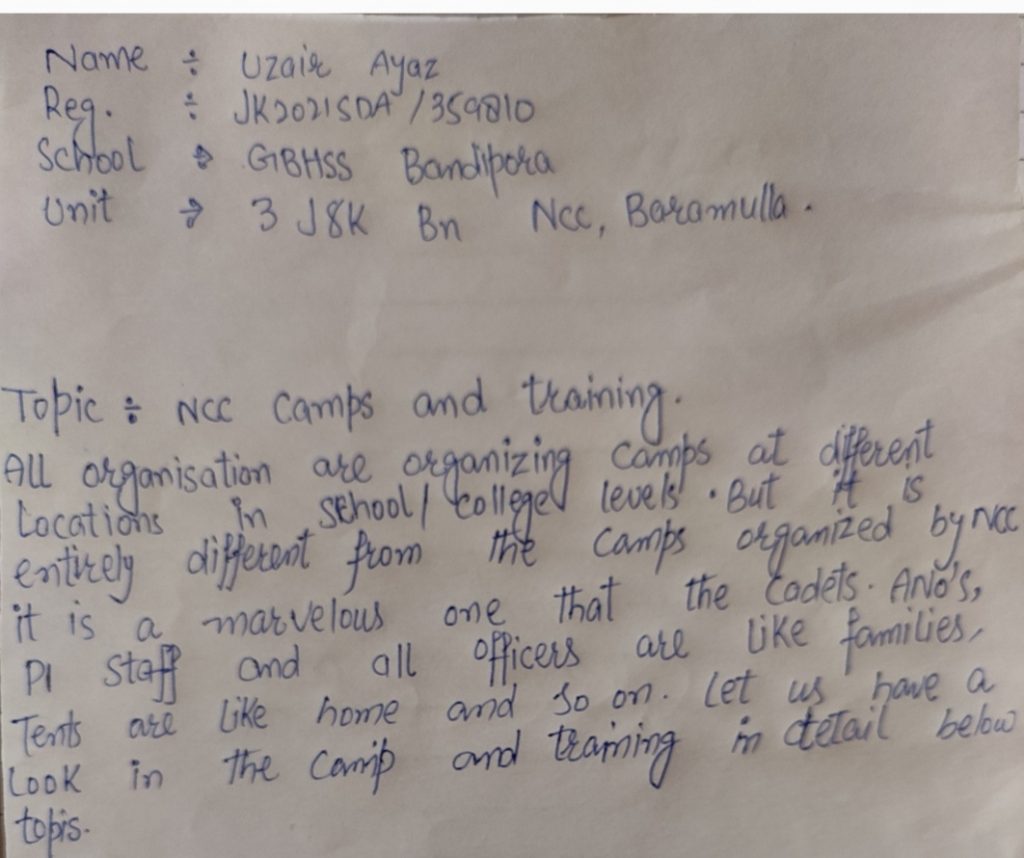 Name ÷ Uzair Ayaz
Reg. ÷ JK2021SDA/359810
School → GBHSS Bandipora
Unit → 3 J&K Bn NCC, Baramulla.
Topic ÷ NCC Camps and training.
All organisation are organizing camps at different
Locations in school/college levels. But it is
entirely different from the camps organized by NCC
it is a marvelous one that the Cadets. ANO's,
PI Staff and all officers are like families,
Tents are like home and so on. Let us have a
Look in the camp and training in detail below
topis.